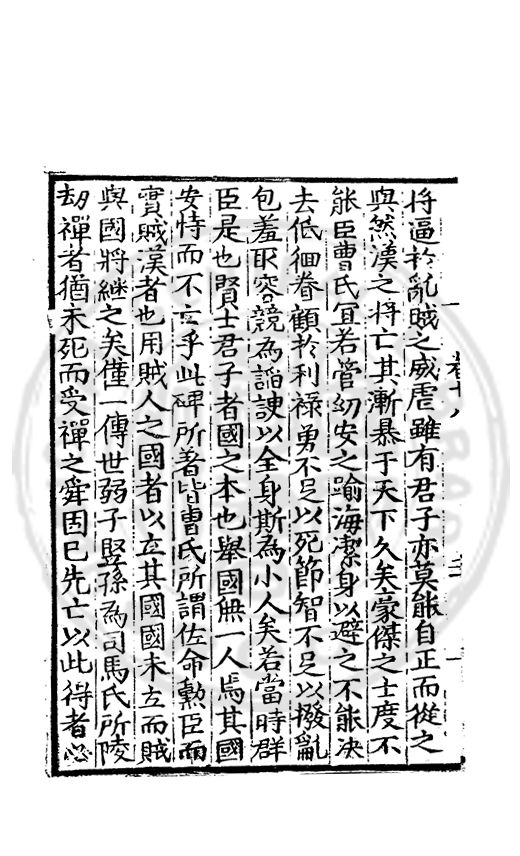 將逼於亂賊之威虐雖有君子亦莫能自正而從之
與然漢之將亡其漸暴于天下久矣豪傑之士度不
能臣曹氏冝若管幼安之踰海潔身以避之不能决
去低佪眷顧於利祿勇不足以死節智不足以撥亂
包羞取容競為謟諛以全身斯為小人矣若當時群
臣是也賢士君子者國之本也舉國無一人焉其國
安恃而不亡乎此碑所著皆曹氏所謂佐命勲臣而
實賊漢者也用賊人之國者以立其國國未立而賊
與國將継之矣僅一傳世弱子竪孫為司馬氏所陵
刼禪者猶未死而受禪之舜因已先亡以此得者必
卷十八